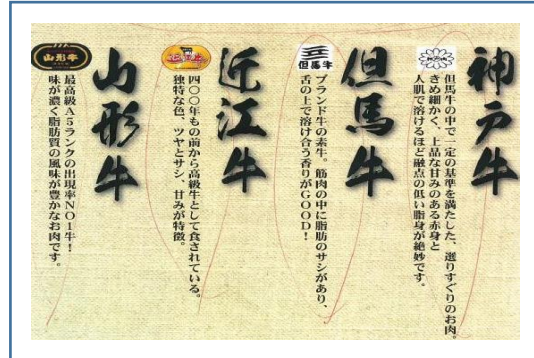 神戸牛
但馬牛の中で一定の基準を満たした、選りすぐりのお肉。
きめ細かく、上品な甘みのある赤身と
人肌で溶けるほど融点の低い脂身が絶妙です。
但馬牛
但馬牛
ブランド牛の素牛。筋肉の中に脂肪のサシがあり、
舌の上で溶け合う香りがGOOD!
近江牛
四〇〇年もの前から高級牛として食されている。
独特な色、ツヤとサシ、甘みが特徴。
山形牛
山形牛
最高級A5ランクの出現率NO1牛!
味が濃く脂肪質の風味が豊かなお肉です。